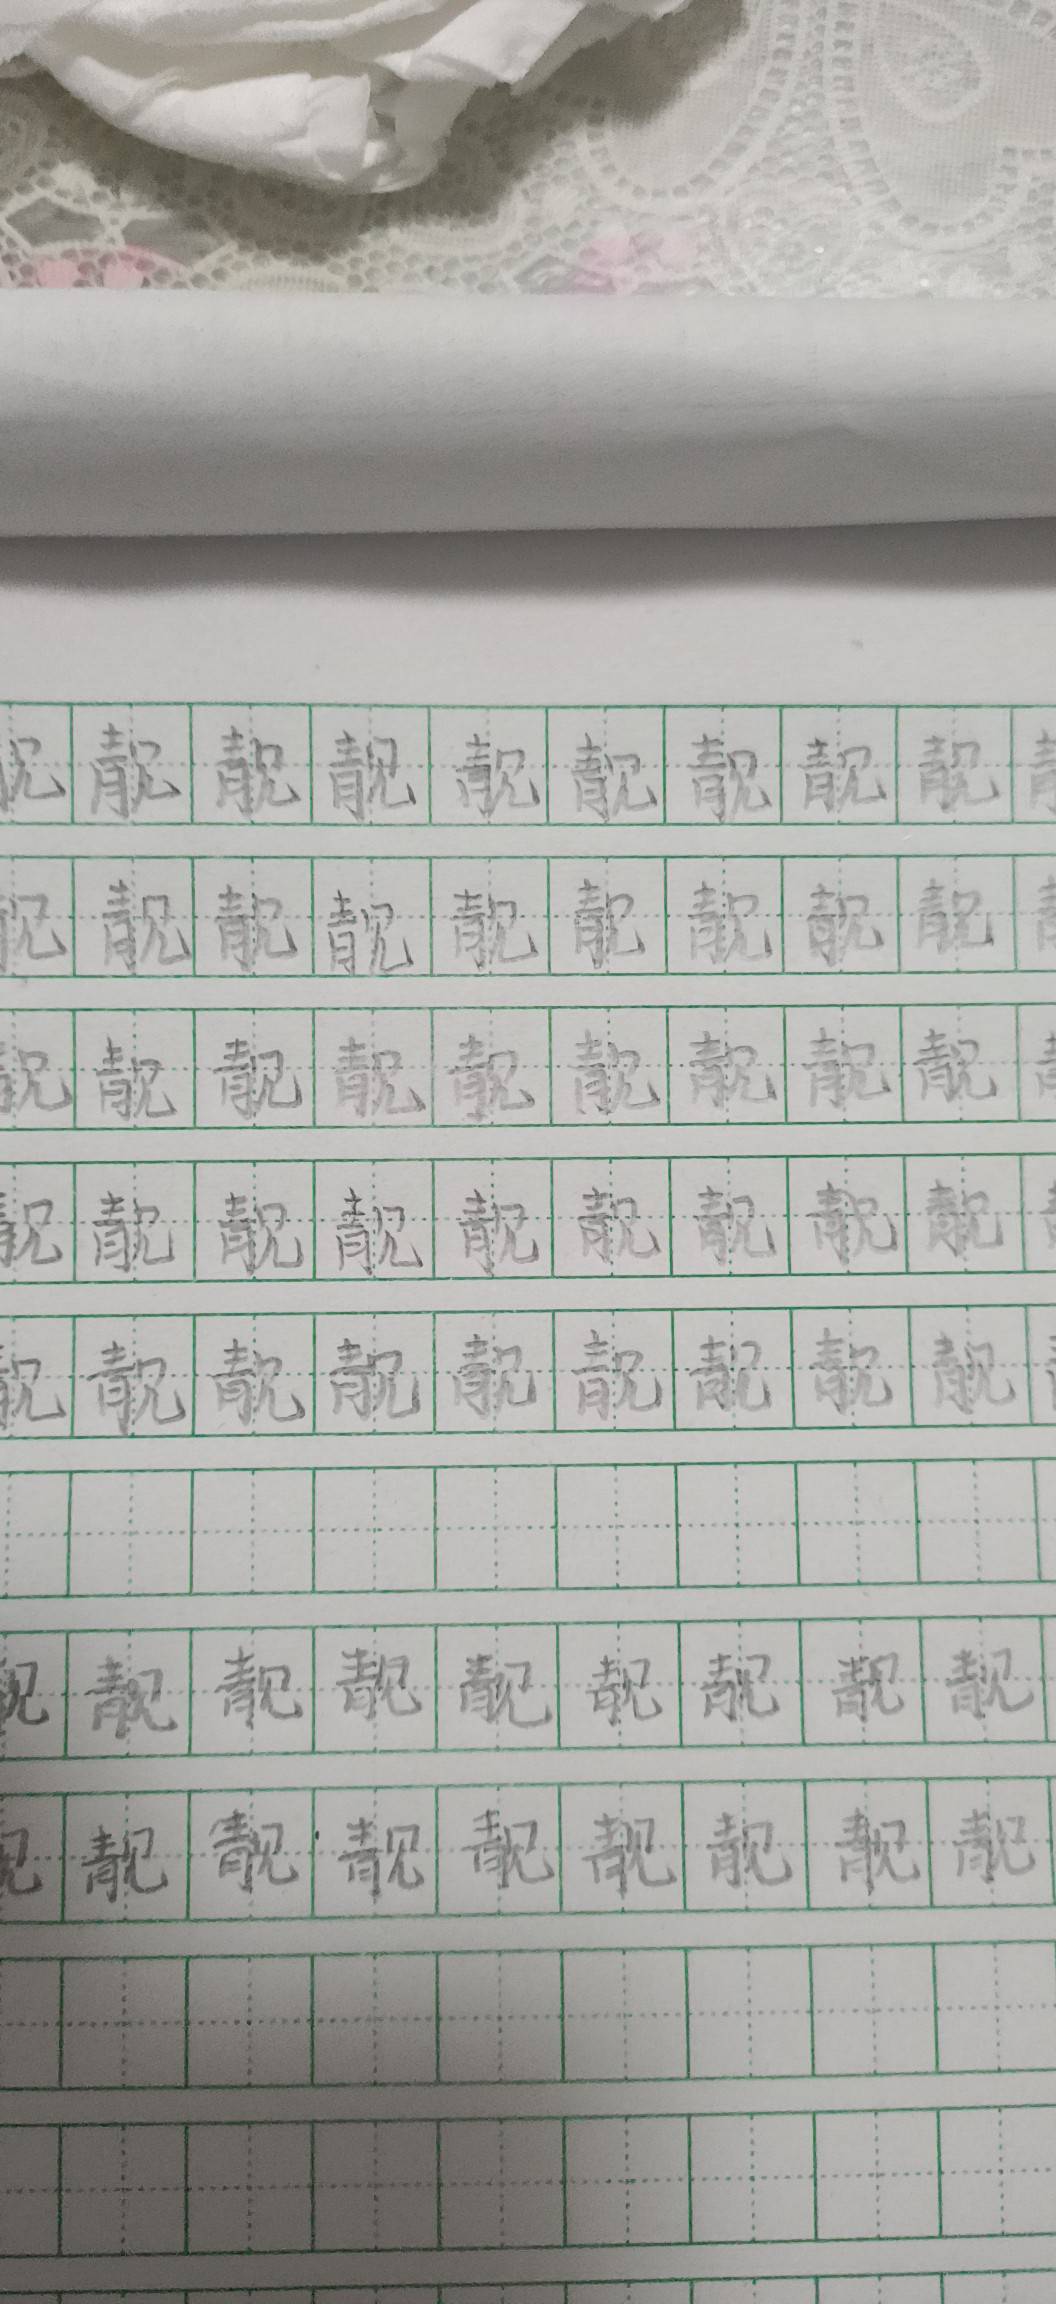 靓靓靓靓靓靓靓靓靓
靓靓靓靓靓靓靓靓靓
靓靓靓靓靓靓靓靓靓
靓靓靓靓靓靓靓靓靓
靓靓靓靓靓靓靓靓靓
靓靓靓靓靓靓靓靓靓
靓靓靓靓靓靓靓靓靓